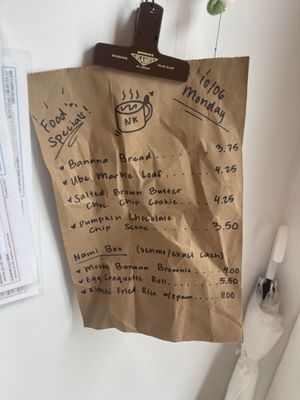 Food Specials!
NK
10/06
Monday
Banana Bread.......... 3.75
Ube Marble Loaf....... 4.25
Salted Brown Butter
Choc. Chip Cookie.... 4.25
Pumpkin Chocolate
Chip Scone......... 3.50
Nami Box (Venmo/exact cash)
Mochi Banana Brownie..... 4.00
Egg Croquette Roll....... 5.50
Kimchi Fried Rice w/spam.... 11.00